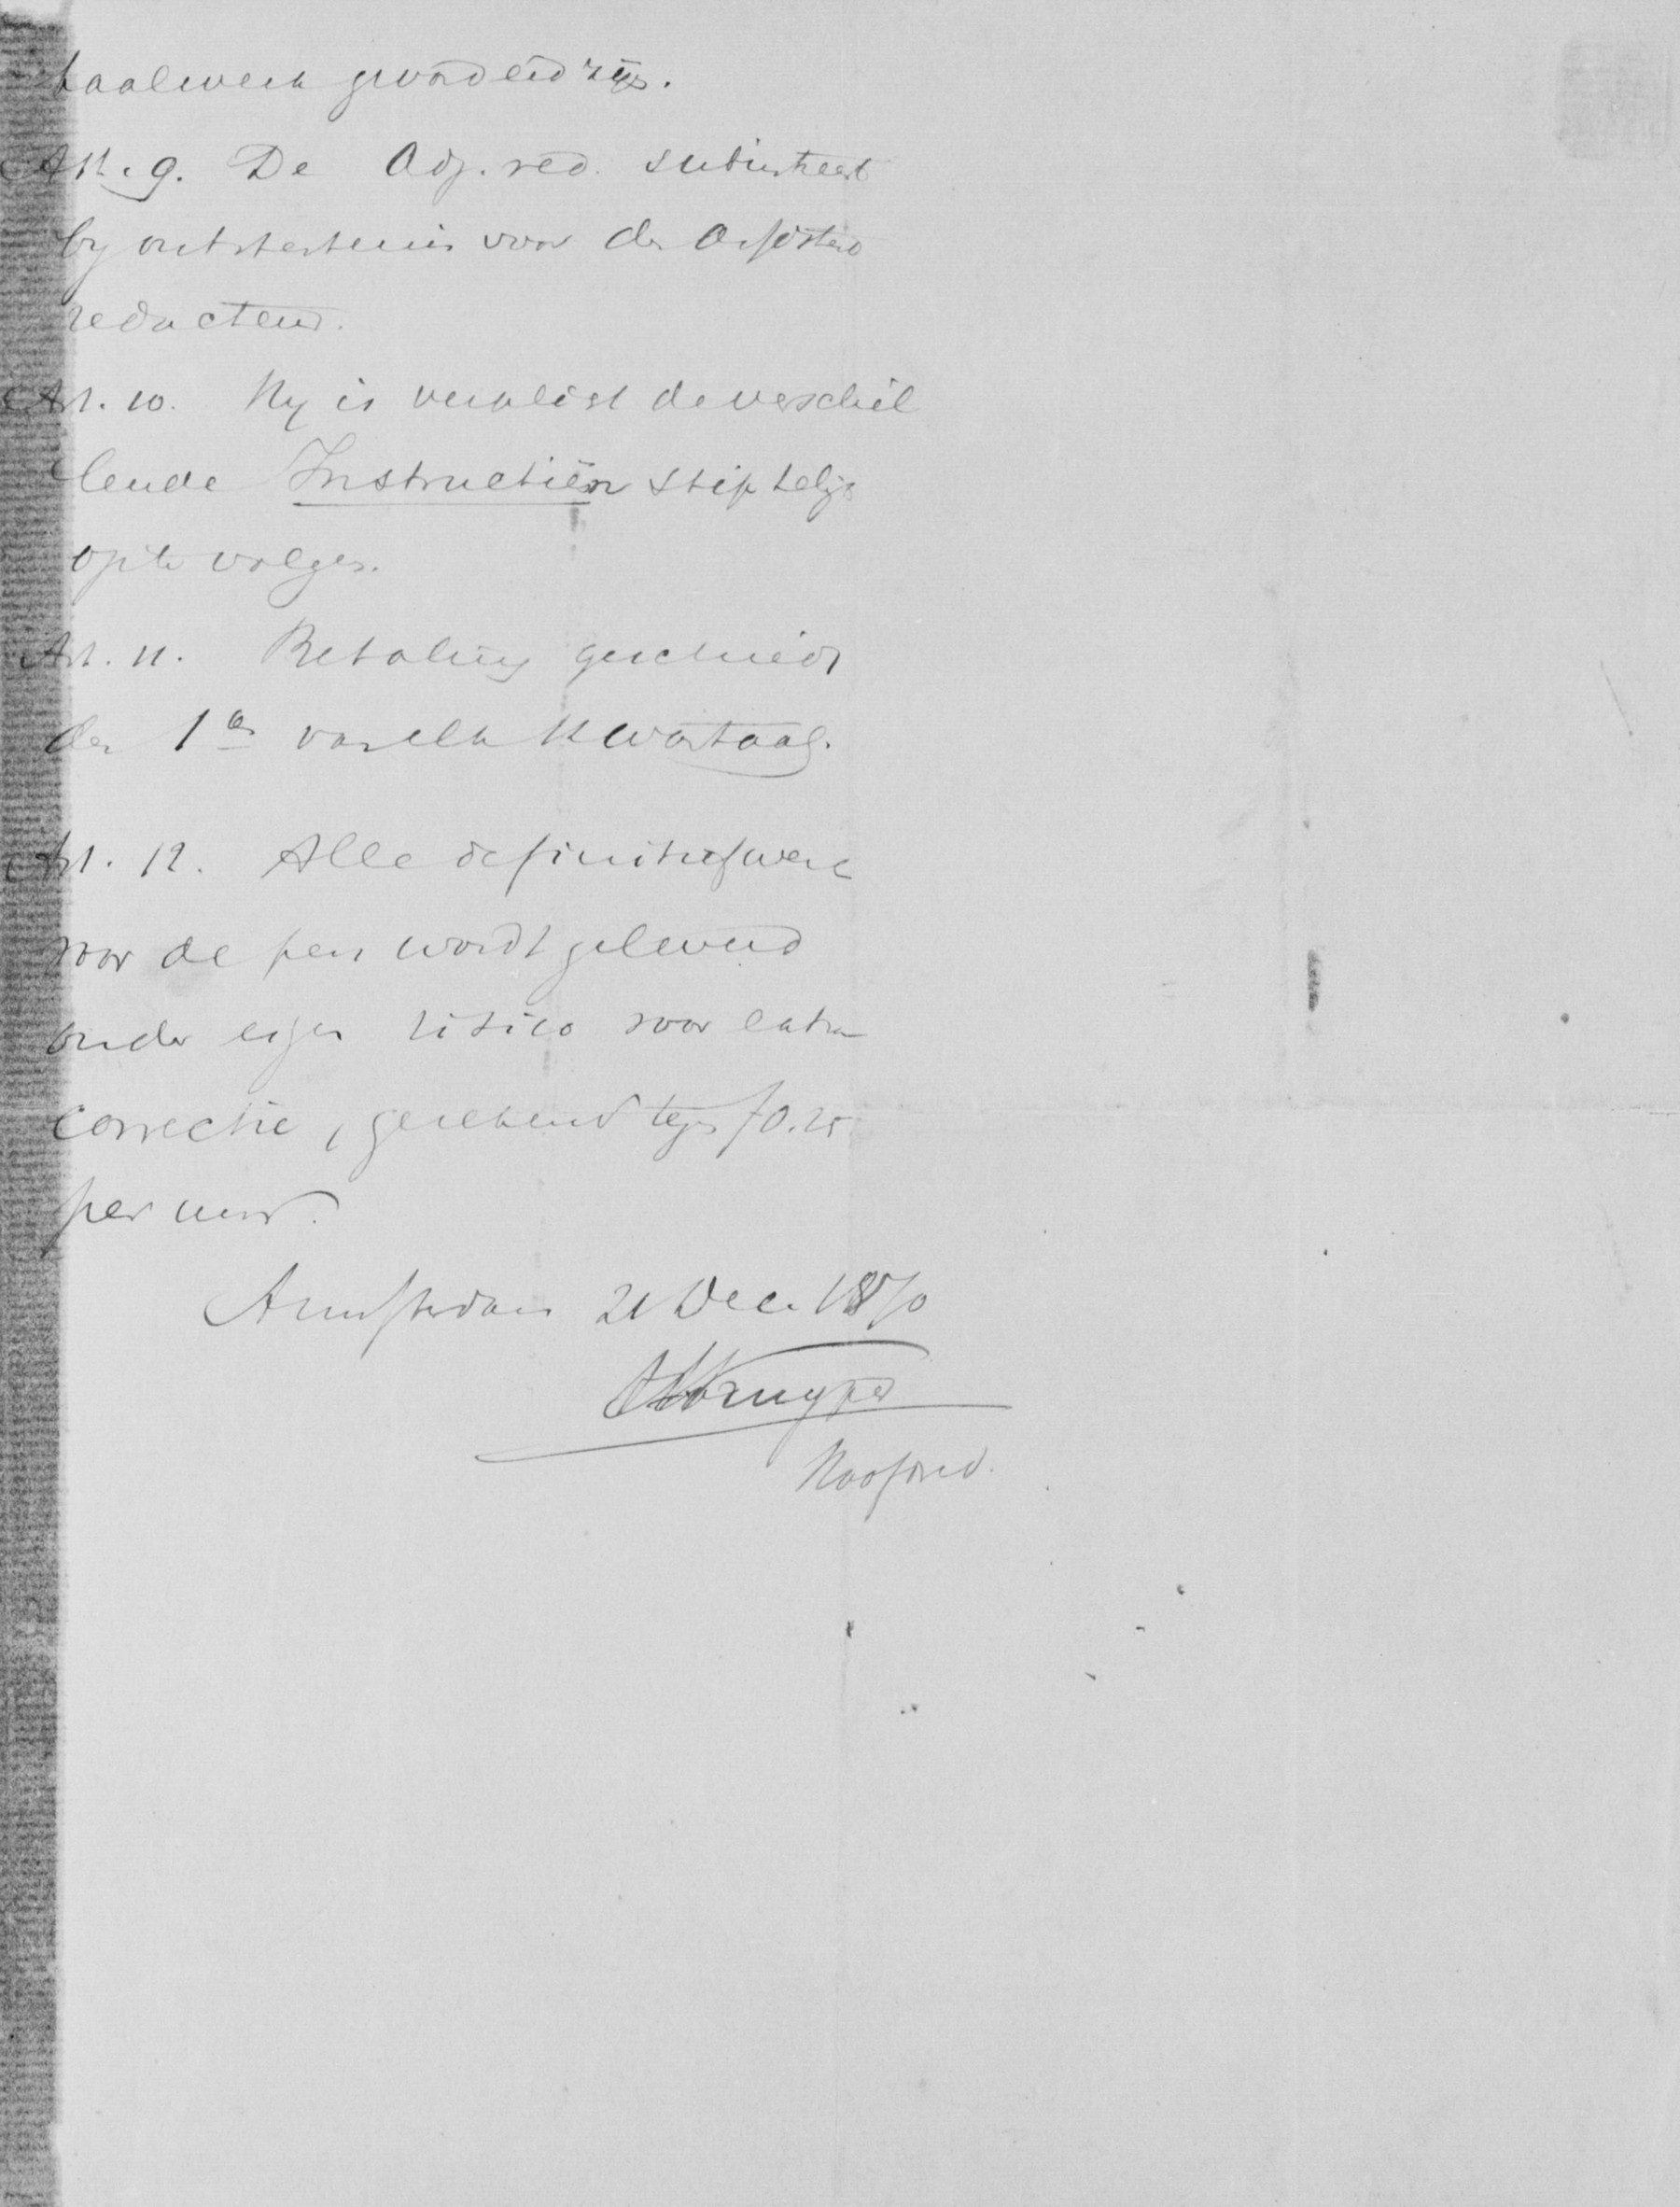 taalwerk gevorderd zijn.
Art. 9. De Adj. red. subintreert
by ontstentenis voor den
redacteur.
Art. 10. Hy is verplicht de verschil
lende Instructiën stiptelijk
op te volgen.
Art. 11. Betaling geschiedt
den 1en van elk Kwartaal.
Art. 12. Alle definitief werk
voor de pers wordt geleverd
onder eigen risico voor extra
correctie, gerekend tegen f 0.25
per uur.
Amsterdam 21 Dec. 1870
AKuyper
Hoofdred.